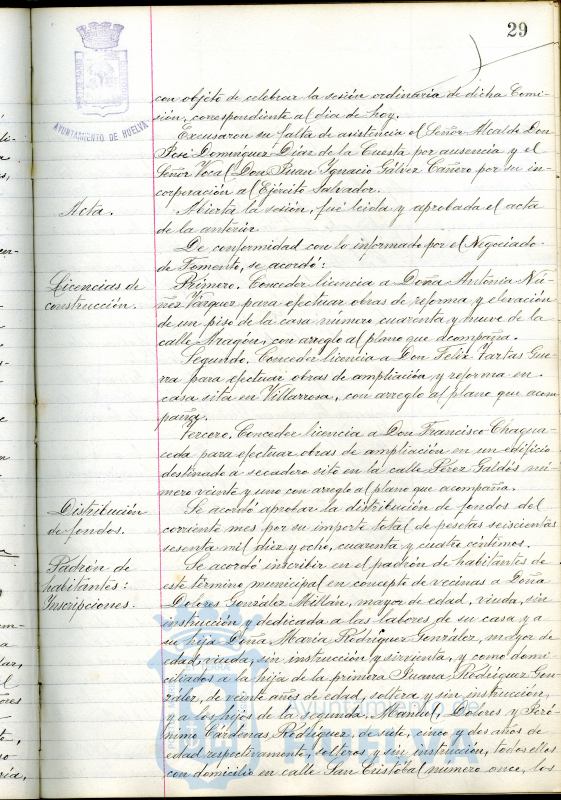 29
AYUNTAMIENTO DE HUELVA
con objeto de celebrar la sesión ordinaria de dicha Comi-
sión, correspondiente al día de hoy.
Excusaron su falta de asistencia el Señor Alcalde Don
José Domínguez Díaz de la Cuesta por ausencia y el
Señor Vocal Don Juan Ignacio Gálvez Cañero por su in-
corporación al Ejército Salvador.
Acta.
Abierta la sesión, fué leida y aprobada el acta
de la anterior.
De conformidad con lo informado por el Negociado
de Fomento, se acordó:
Licencias de
construcción.
Primero. Conceder licencia a Doña Antonia Nú-
ñez Vázquez para efectuar obras de reforma y elevación
de un piso de la casa número cuarenta y nueve de la
calle Aragón, con arreglo al plano que acompaña.
Segundo. Conceder licencia a Don Felix Vartas Gue-
rra para efectuar obras de ampliación y reforma en
casa sita en Villarrosa, con arreglo al plano que acom-
paña.
Tercero. Conceder licencia a Don Francisco Chagua-
ceda para efectuar obras de ampliación en un edificio
destinado a secadero sito en la calle Pérez Galdós nú-
mero veinte y uno con arreglo al plano que acompaña.
Distribución
de fondos.
Se acordó aprobar la distribución de fondos del
corriente mes por su importe total de pesetas seiscientas
sesenta mil diez y ocho, cuarenta y cuatro céntimos.
Padrón de
habitantes:
Inscripciones.
Se acordó inscribir en el padrón de habitantes de
este término municipal en concepto de vecinas a Doña
Dolores González Millán, mayor de edad, viuda, sin
instrucción y dedicada a las labores de su casa y a
su hija Doña María Rodríguez González, mayor de
edad, viuda, sin instrucción y sirvienta, y como domi-
ciliados a la hija de la primera Juana Rodríguez Gon-
zález, de veinte años de edad, soltera y sin instrucción,
y a los hijos de la segunda, Manuel, Dolores y Jeró-
nimo Cárdenas Rodríguez, de siete, cinco y dos años de
edad respectivamente, solteros y sin instrucción, todos ellos
con domicilio en calle San Cristóbal número once, los
Ayuntamiento de